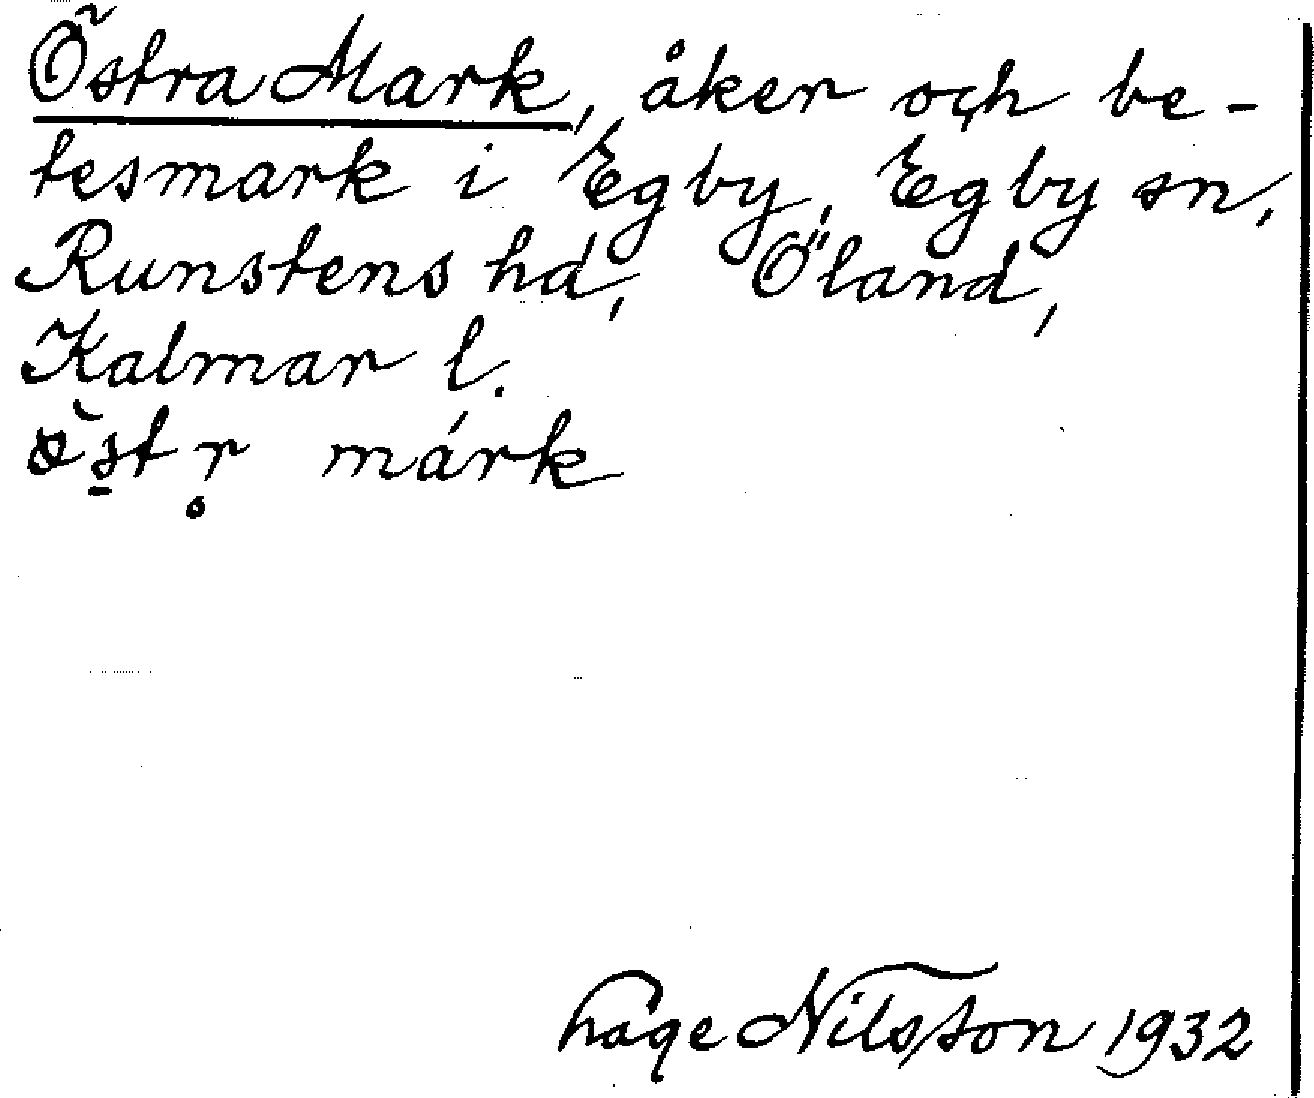 Östra Mark, åker och be-
tesmark i Egby, Egby sn,
Runstens hd, Öland,
Kalmar l.
ö̀s̱tr̥ márk
Håge Nilsson 1932